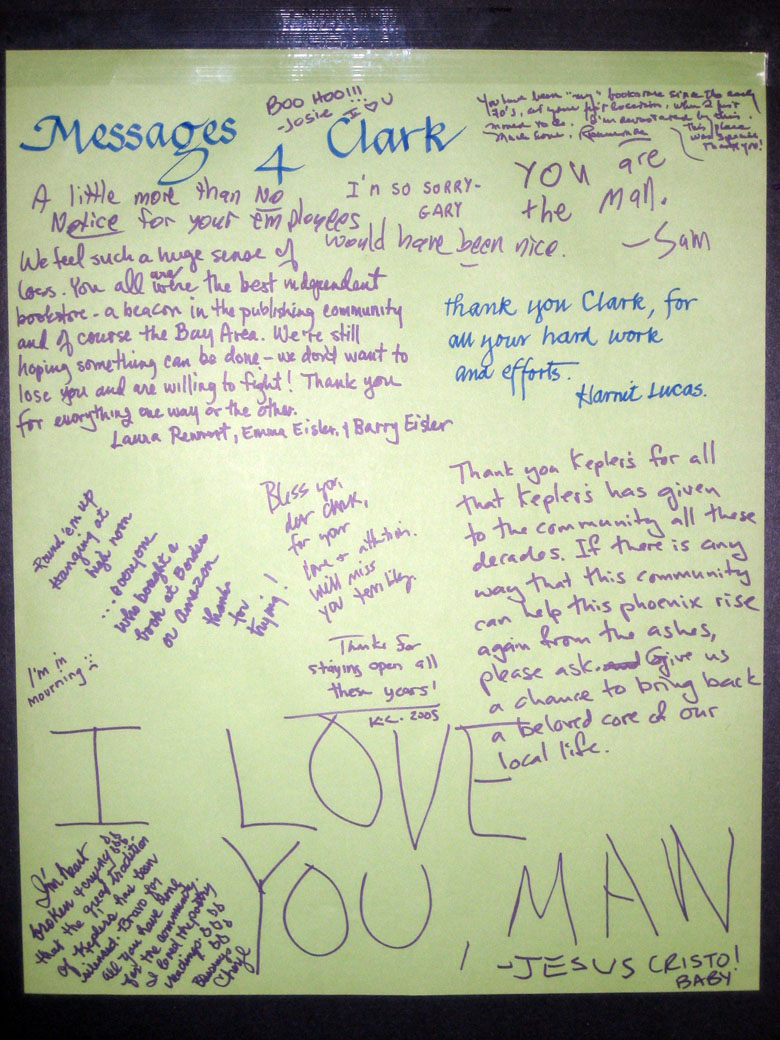 BOO HOO!!!
-Josie I ♡ U
You have been "my" bookstore since the early
70's, at your first location, when I first
moved to . I'm devastated by this.
Much love,
This place
was special.
Thank you!
Messages
4 Clark
A little more than No
Notice for your employees
would have been nice.
I'm so sorry-
GARY
YOU are
the Man.
—Sam
We feel such a huge sense of
loss. You all are were the best independent
bookstore - a beacon in the publishing community
and of course the Bay Area. We're still
hoping something can be done - we don't want to
lose you and are willing to fight! Thank you
for everything one way or the other.
Laura Rennert, Emma Eisler, & Barry Eisler
thank you Clark, for
all your hard work
and efforts.
Harriet Lucas.
Round 'em up
Hanging at
high noon
... everyone
who bought a
book at Borders
or Amazon
thanks
for
trying!
Bless you,
dear Clark,
for your
love & attention.
Will miss
you terribly.
Thank you Kepler's for all
that Kepler's has given
to the community all these
decades. If there is any
way that this community
can help this phoenix rise
again from the ashes,
please ask. Give us
a chance to bring back
a beloved core of our
local life.
I'm in
mourning
Thanks for
staying open all
these years!
K.C. 2005
I LOVE
YOU, MAN
-JESUS CRISTO!
BABY
I'm heart
broken & crying
that the great tradition
of Keplers has been
silenced. Bravo for
all you have done
for the community.
I loved the poetry
readings.
Blessings
Cheryl